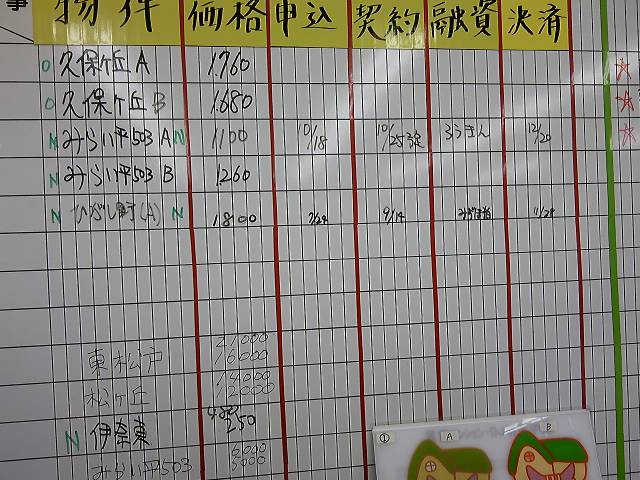 事 物件 価格 申込 契約 融資 決済
O 久保ケ丘 A 1.760
O 久保ヶ丘 B 1.680
N みらい平503 A N 1100 10/18 10/25予定 ろうきん 12/20
N みらい平503 B 1.260
N ひがし町(A) N 1.800 7/24 9/14 11/28
21,000
東松戸 16000
14,000
松ヶ丘 12000
N 伊奈東 250
6,000
みらい平503 5000
① A B